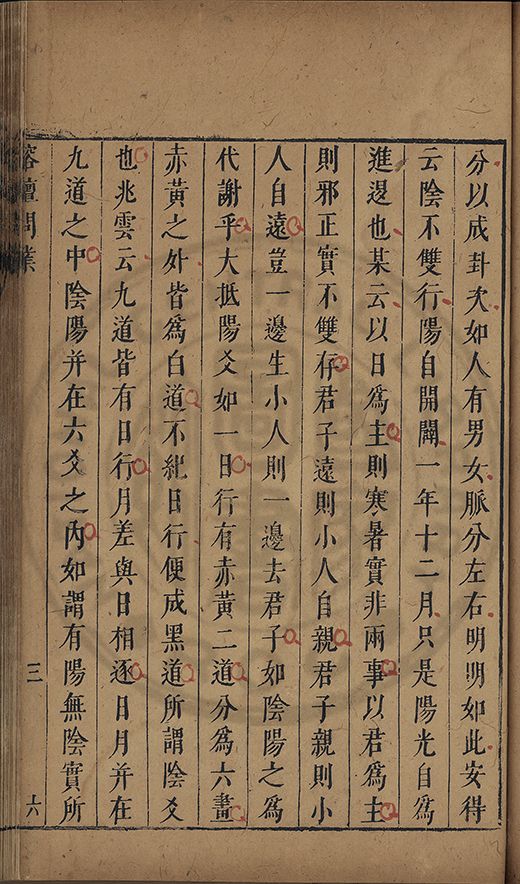 分以成卦爻如人有男女脈分左右明明如此安得
云陰不雙行陽自開闢一年十二月只是陽光自爲
進退也某云以日爲主則寒暑實非兩事以君爲主
則邪正實不雙存君子遠則小人自親君子親則小
人自遠豈一邊生小人則一邊去君子如陰陽之爲
代謝乎大抵陽爻如一日行有赤黃二道分爲六畫
赤黃之外皆爲白道不紀日行便成黑道所謂陰爻
也兆雲云九道皆有日行月差與日相逐日月并在
九道之中陰陽并在六爻之內如謂有陽無陰實所
榕壇問業
三
六